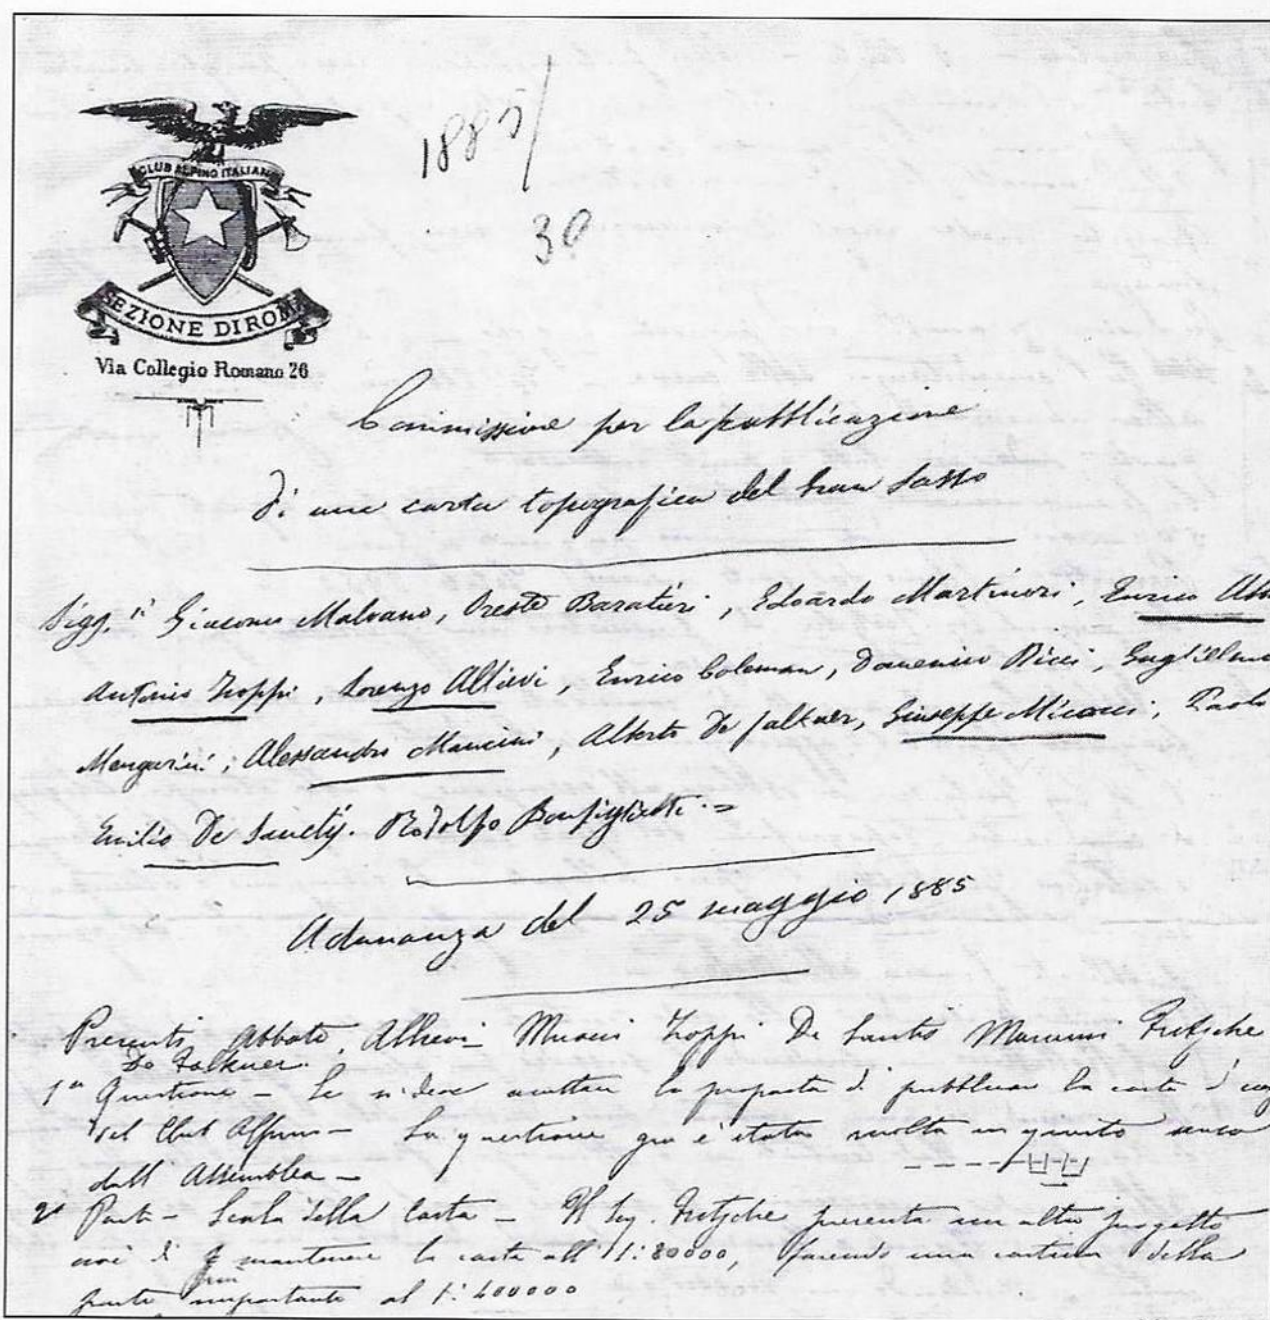 CLUB ALPINO ITALIANO
SEZIONE DI ROMA
Via Collegio Romano 26
1885/
30
Commissione per la pubblicazione
di una carta topografica del Gran Sasso
Sigg.ri Giacomo Malvano, Oreste Baratieri, Edoardo Martinori, Enrico Abb
Antonio Zoppi, Lorenzo Allievi, Enrico Coleman, Domenico Ricci, Guglielmo
Mengarini, Alessandro Mancini, Alberto De Falkner, Giuseppe Micocci, Paolo
Emilio De Sanctis. Rodolfo Bonfiglietti
Adunanza del 25 maggio 1885
Presenti Abbate, Allievi Micocci Zoppi De Santis Mancini Fritzsche
De Falkner
1a Questione - Se si deve accettare la proposta di pubblicare la carta d
del Club Alpino - La questione già è stata risolta in questo senso
dall'Assemblea -
2a Parte - Scala della Carta - Il Sig. Fritzsche presenta un altro progetto
di mantenere la carta all'1:80000, facendo una cartina della
parte importante al 1: